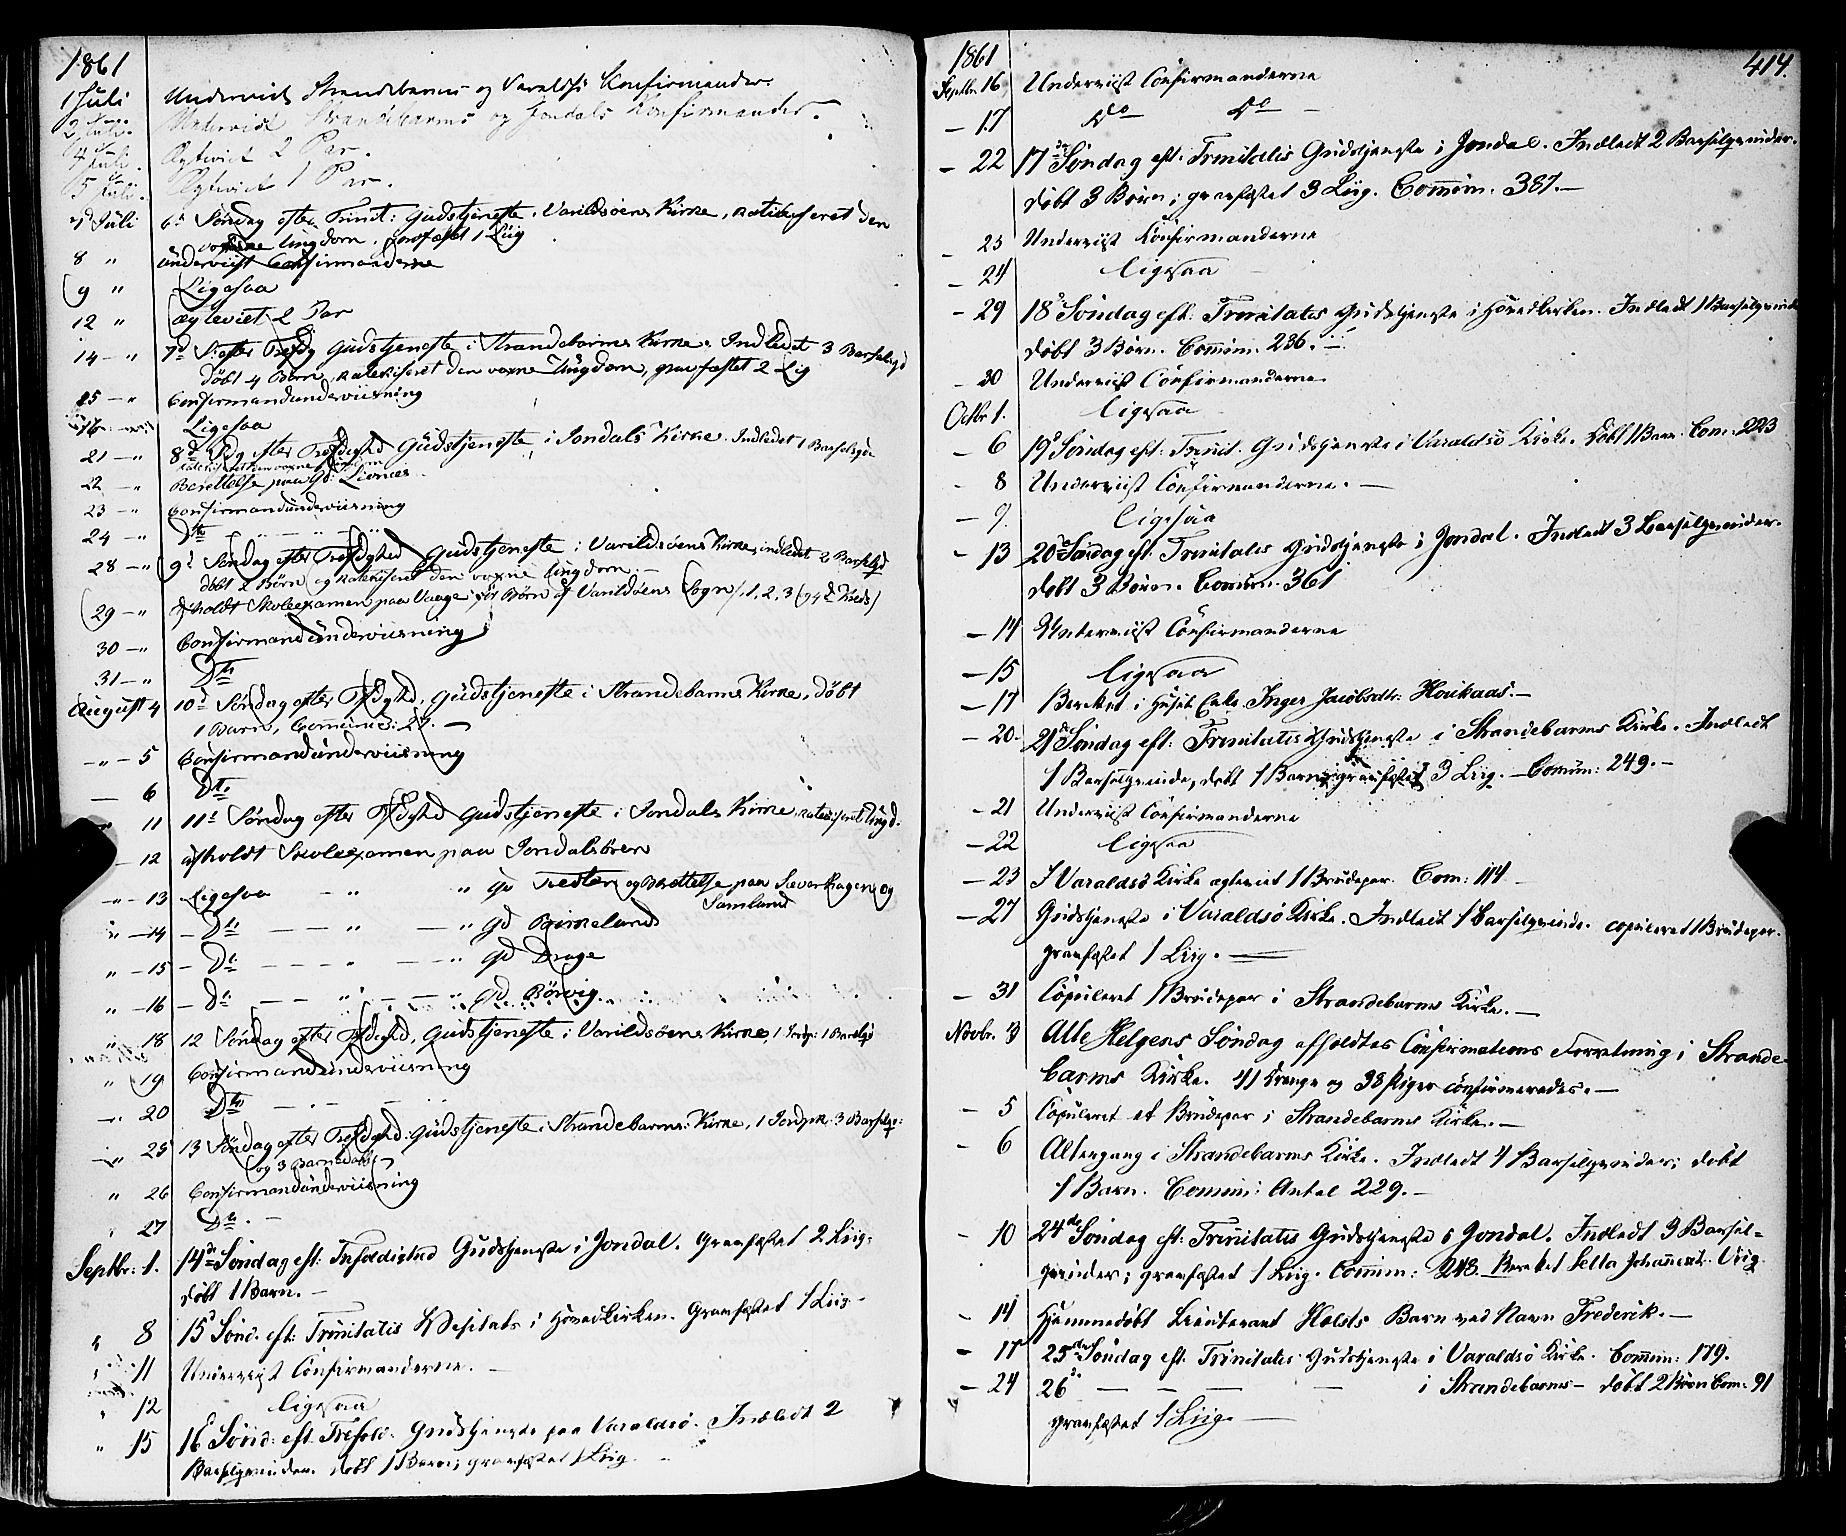 1861
1 Juli Underviist Strandebarms og Varaldsø Konfirmander.
2 Juli. Underviist Strandebarms og Jondals Konfirmander.
4 Juli. Ægteviet 2 Par.
5 Juli. Ægteviet 1 Par.
7d Juli 6d Søndag efter Trinit: Gudstjeneste i Varildsøens Kirke, katekiseret den
voxne Ungdom. Jordfæstet 1 Liig
8 " underviist Confirmanderne
9 " Ligesaa
12 " Ægteviet 2 Par
14 - " 7d S. efter Trefdg Gudstjeneste i Strandebarms Kirke. Indledet 3 Barselqd
Døbt 4 Børn, katekiseret den voxne Ungdom, graafæstet 2 Lig
15 - " Confirmandunderviisning
16 Ligesaa
21 - " 8d Sdg efter Trefdghd Gudstjeneste i Jondals Kirke. Indledet 1 Barselqv
katekiseret den voxne Ungdom
22 - " Berettelse paa Gd:
23 - " Confirmandunderviisning
24 - " Do
28 - " 9d Søndag efter Trefdghed Gudstjeneste i Varildsøens Kirke, indledet 2 Barselqd
døbt 2 Børn og katekiseret den voxne Ungdom.
29 - " Afholdt Skoleexamen paa Vaage for Børn af Varildsøens Sogn /1, 2, 3 og 4d Kreds/
30 - " Confirmandunderviisning
31 - " Do
August 4 10d Søndag efter Trefdghd, Gudstjeneste i Strandebarms Kirke, døbt
1 Barn, Communic: 27. -
- " - 5 Confirmandunderviisning
- 6 Do
11 11d Søndag efter Trefdghd Gudstjeneste i Jondals Kirke, katekiseret Ungd.
- 12 afholdt Skoleexamen paa Jondalsøren
- " - 13 Ligesaa - " " Gd Tvedten og Berettelse paa Sæverhagen og
Samland
" - 14 - Do - - " - " Gd Birkeland
" - 15 - Do - - " - " Gd Drage
" - 16 - Do - - " - " Gd Børvig.
" 18 12 Søndag efter Trefdghd, Gudstjeneste i Varildsøens Kirke, 1 Jordp: 1 Barselqv
" 19 Confirmandunderviisning
20 Do
" 25 13 Søndag efter Trefdghd. Gudstjeneste i Strandebarms Kirke, 1 Jordpk. 3 Barselqv:
og 3 Barnedaab
" 26 Confirmandunderviisning
" 27 Do. -
Septbr: 1. 14de Søndag eft: Trefoldighed Gudstjeneste i Jondal. Graafæstet 2 Liig.
døbt 1 Barn. -
" 8 15d Sønd. eft: Trinitatis Visitats i Hovedkirken. Graafæstet 1 Liig -
" 11 Underviist Confirmanderne. -
" 12 Ligesaa
" 15 16d Sønd: eft. Trefold. Gudstjeneste paa Varaldsø. Indledt 2
Barselqvinder. døbt 1 Barn; graafæstet 1 Liig.
1861 414.
Septbr. 16 Underviist Confirmanderne
- 17 Do Do -
- 22 17de Søndag eft. Trinitatis Gudstjeneste i Jondal. Indledt 2 Barselqvinder.
døbt 3 Børn; graafæstet 3 Liig. Commun. 387. -
- 23 Underviist Konfirmanderne
- 24 Ligesaa
- 29 18d Søndag eft: Trinitatis Gudstjeneste i Hovedkirken. Indledt 1 Barselqvinde
døbt 3 Børn. Commun. 236.
- 30 Underviist Confirmanderne
Octbr 1. Ligesaa
- 6 19d Søndag eft. Trinit. Gudstjeneste i Varaldsø Kirke. Døbt 1 Barn. Com: 223
- 8 Underviist Confirmanderne. -
- 9. Ligesaa
- 13 20d Søndag eft. Trinitatis Gudstjeneste i Jondal. Indledt 3 Barselqvinder.
døbt 3 Børn. Commun. 361
- 14 Underviist Confirmanderne
- 15 Ligesaa
- 17 Berettet i Huset Enke Inger Jacobsdtr. Houkaas. -
- 20 21de Søndag eft: Trinitatis Gudstjeneste i Strandebarms Kirke. Indledt
1 Barselqvinde, døbt 1 Barn, graafæstet 3 Liig. - Commun: 249. -
- 21 Underviist Confirmanderne
- 22 Ligesaa
- 23 I Varaldsø Kirke ægteviet 1 Brudepar. Com: 114
- 27 Gudstjeneste i Varaldsø Kirke. Indledt 1 Barselqvinde. copuleret 1 Brudepar.
graafæstet 1 Liig.
- 31 Copuleret 1 Brudepar i Strandebarms Kirke. -
Novbr. 3 Alle Helgens Søndag afholdtes Confirmations Forretning i Strande-
barms Kirke. 41 Drenge og 38 Piger confirmeredes. -
- 5 Copuleret et Brudepar i Strandebarms Kirke. -
- 6 Altergang i Strandebarms Kirke. Indledt 4 Barselqvinder; døbt
1 Barn. Commun: Antal 229. -
- 10 24de Søndag eft: Trinitatis Gudstjeneste i Jondal. Indledt 3 Barsel-
qvinder; graafæstet 1 Liig. Commun: 248. Berettet Sella Johannesdtr. Viig.
- 14 Hjemmedøbt Lieutenant Holsts Barn ved Navn Frederik. -
- 17 25de Søndag eft. Trinitatis Gudstjeneste i Varaldsø Kirke. Commun: 179.
- 24 26d - - - - i Strandebarms - Døbt 2 Børn Com: 91
graafæstet 1 Liig. -